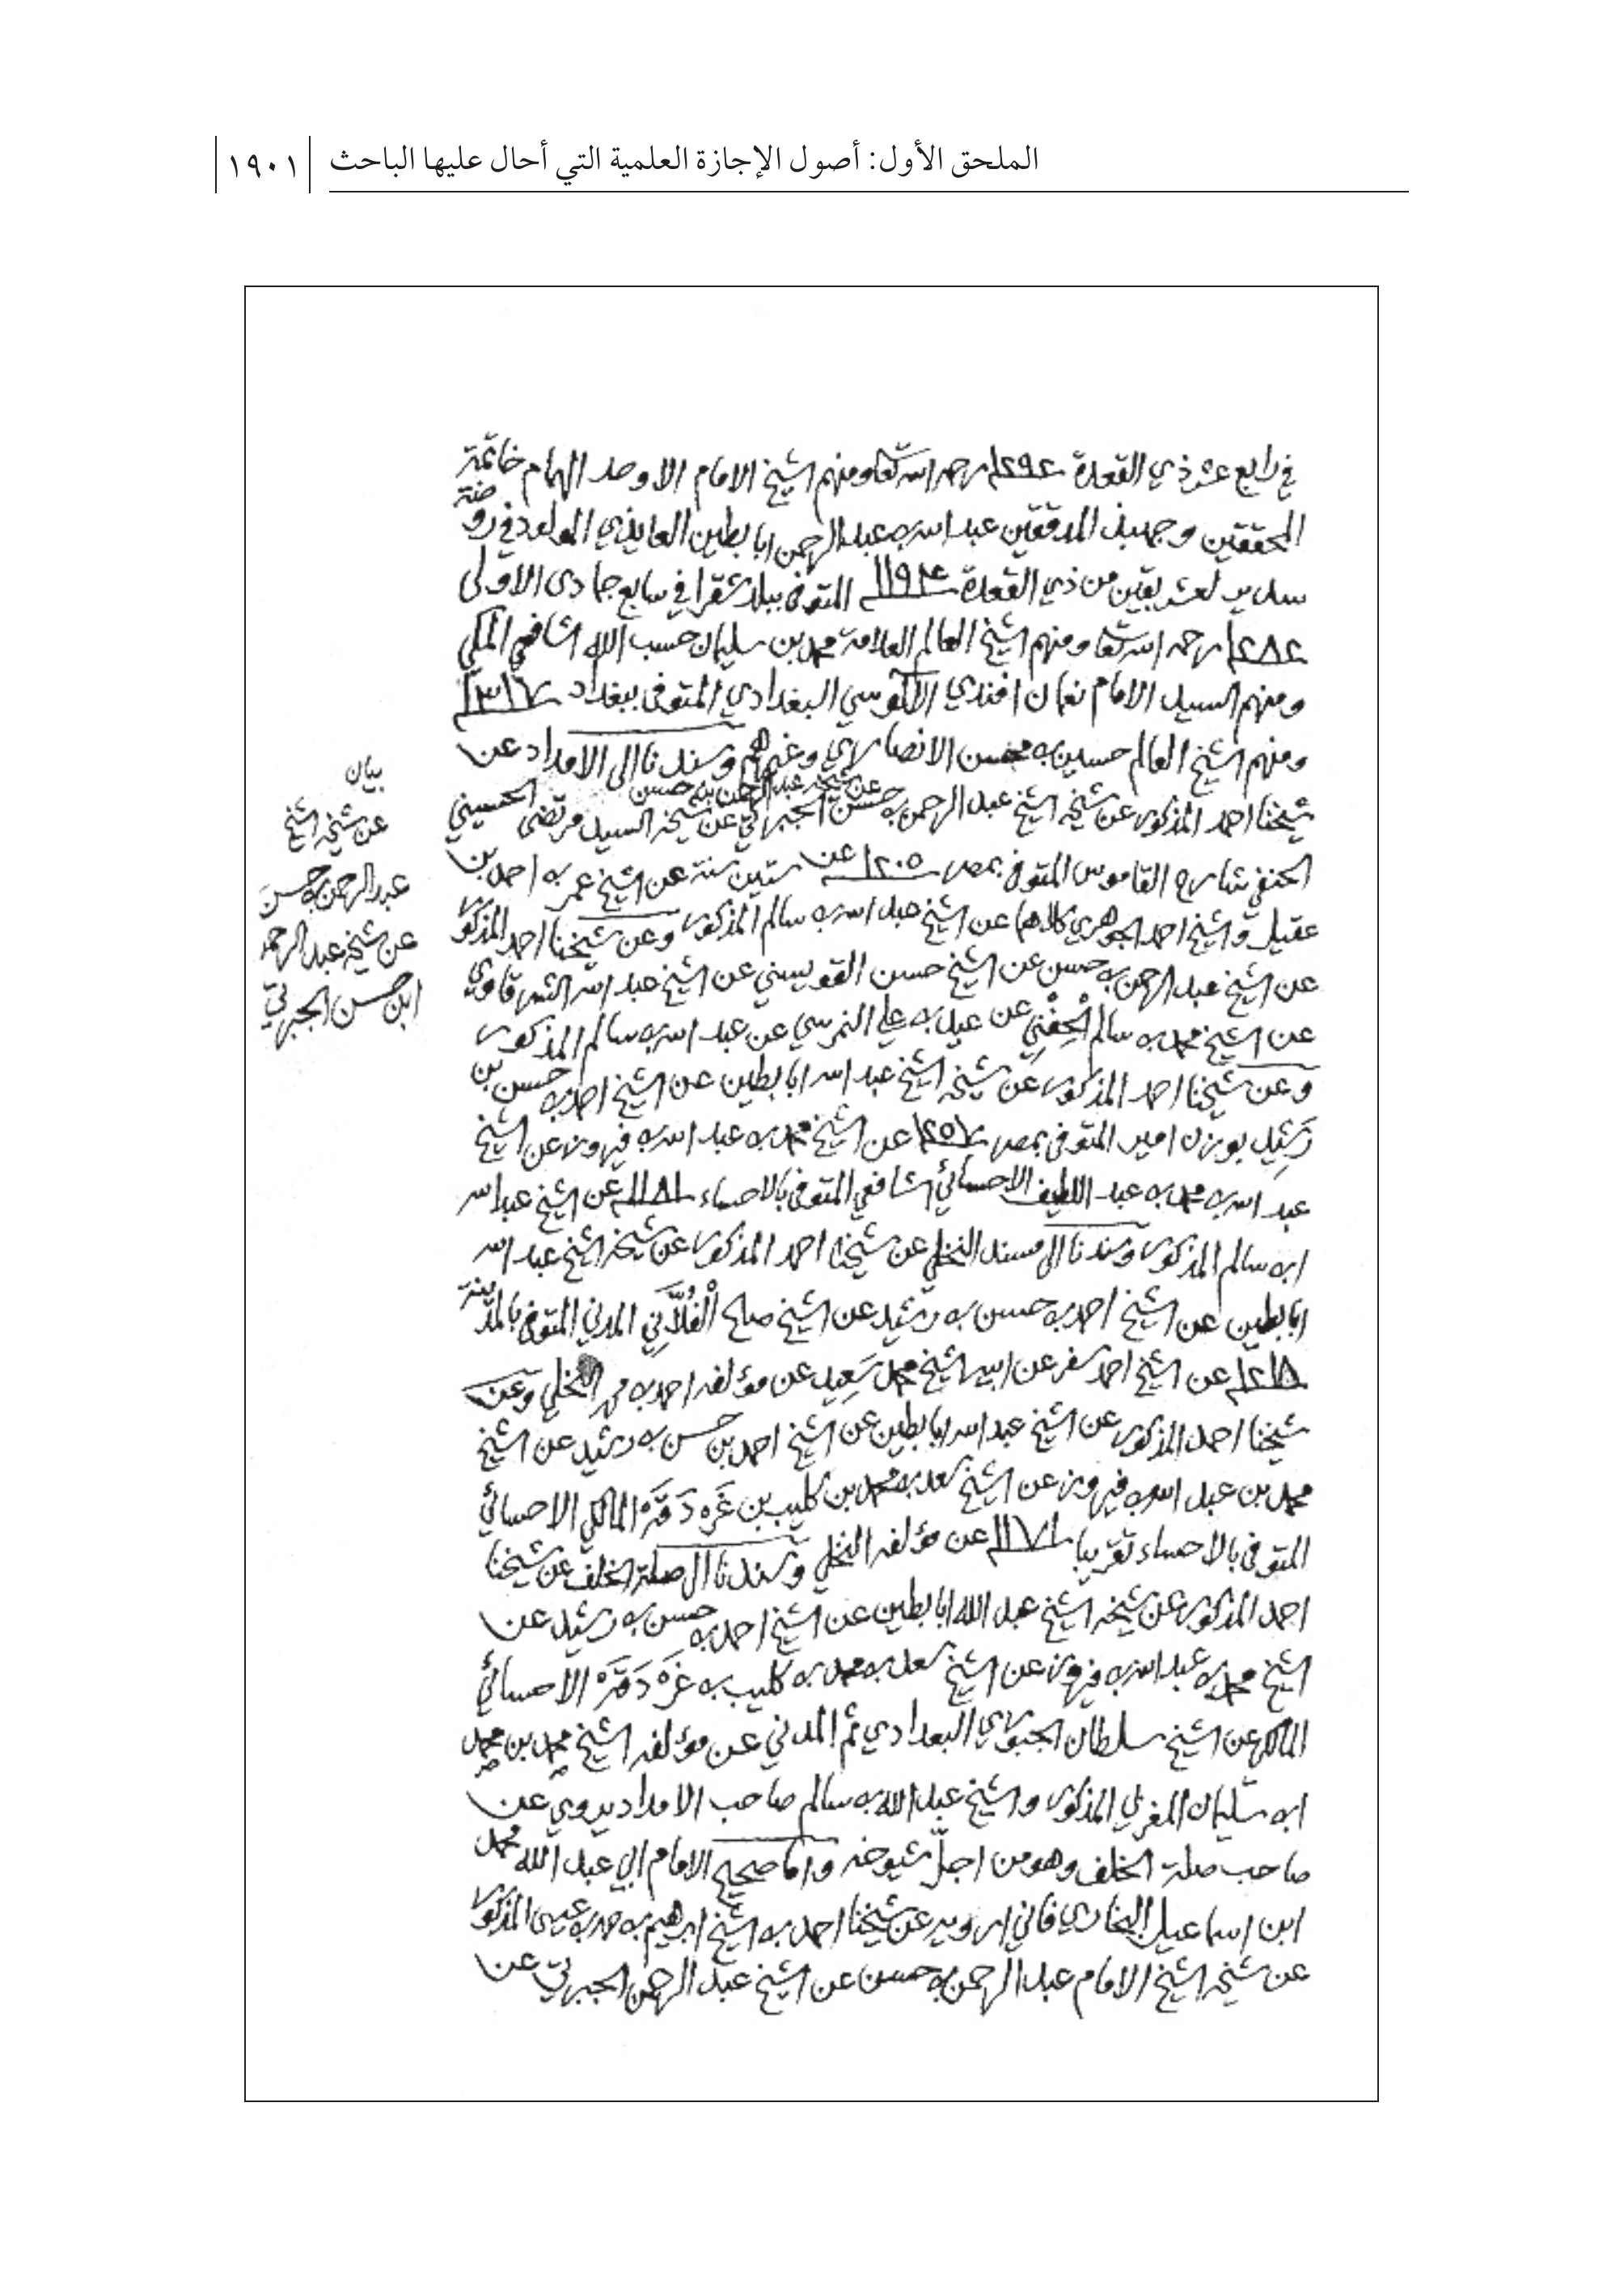 الملحق الأول: أصول الإجازة العلمية التي أحال عليها الباحث | ١٩٠١
في رابع عشر ذي القعدة ١٢٩٢ رحمه الله تعا ومنهم الشيخ الامام الاوحد الهمام خاتمة
المحققين وجهبذ المدققين عبد الله بن عبد الرحمن ابا بطين العايذي المولود في روضة
سدير لعشر بقين من ذي القعدة ١١٩٤ المتوفى ببلد شقرا في سابع جمادى الاولى
١٢٨٢ رحمه الله تعا ومنهم الشيخ العالم العلامة محمد بن سليمان حسب الله الشافعي المكي
ومنهم السيد الامام نعمان افندي الآلوسي البغدادي المتوفى ببغداد ١٣١٧
ومنهم الشيخ العالم حسين بن محسن الانصاري وغيرهم وسندنا الى الامداد عن
شيخنا احمد المذكور عن شيخه الشيخ عبد الرحمن بن حسن عن شيخه عبد الرحمن بن حسن الجبرتي عن شيخه السيد مرتضى الحسيني
الحنفي شارح القاموس المتوفى بمصر ١٢٠٥ عن ستين سنة عن الشيخ عمر بن احمد بن
عقيل والشيخ احمد الجوهري كلاهما عن الشيخ عبد الله بن سالم المذكور وعن شيخنا احمد المذكور
عن الشيخ عبد الرحمن بن حسن عن الشيخ حسن القويسني عن الشيخ عبد الله الشرقاوي
عن الشيخ محمد بن سالم الحِفْني عن عيد بن علي النمرسي عن عبد الله بن سالم المذكور
وعن شيخنا احمد المذكور عن شيخه الشيخ عبد الله ابا بطين عن الشيخ احمد بن حسن بن
رَشِيد بوزن امير المتوفى بمصر ١٢٥٧ عن الشيخ محمد بن عبد الله بن فيروز عن الشيخ
عبد الله بن محمد بن عبد اللطيف الاحسائي الشافعي المتوفى بالاحساء ١١٨١ عن الشيخ عبد الله
ابن سالم المذكور وسندنا الى مسند النخلي عن شيخنا احمد المذكور عن شيخه الشيخ عبد الله
ابا بطين عن الشيخ احمد بن حسن بن رشيد عن الشيخ صالح الْفُلَّانِي المدني المتوفى بالمدينة
١٢١٨ عن الشيخ احمد سفر عن ابيه الشيخ محمد سَعِيد عن مؤلفه احمد بن محمد النخلي وعن
شيخنا احمد المذكور عن الشيخ عبد الله ابا بطين عن الشيخ احمد بن حسن بن رشيد عن الشيخ
محمد بن عبد الله بن فيروز عن الشيخ سعد بن محمد بن كليب بن غَرْه دَقَّه المالكي الاحسائي
المتوفى بالاحساء تقريبا ١١٧١ عن مؤلفه النخلي وسندنا الى صلة الخلف عن شيخنا
احمد المذكور عن شيخه الشيخ عبد الله ابا بطين عن الشيخ احمد بن حسن بن رشيد عن
الشيخ محمد بن عبد الله بن فيروز عن الشيخ سعد بن محمد بن كليب بن غَرْه دَقَّه الاحسائي
المالكي عن الشيخ سلطان الجبوري البغدادي ثم المدني عن مؤلفه الشيخ محمد بن محمد
ابن سليمان المغربي المذكور والشيخ عبد الله بن سالم صاحب الامداد يروي عن
صاحب صلة الخلف وهو من اجلّ شيوخه واما صحيح الامام ابي عبد الله محمد
ابن اسماعيل البخاري فاني ارويه عن شيخنا احمد بن الشيخ ابراهيم بن حمد بن عيسى المذكور
عن شيخه الشيخ الامام عبد الرحمن بن حسن عن الشيخ عبد الرحمن الجبرتي عن
بيان
عن شيخه الشيخ
عبد الرحمن بن حسن
عن شيخه عبد الرحمن
ابن حسن الجبرتي